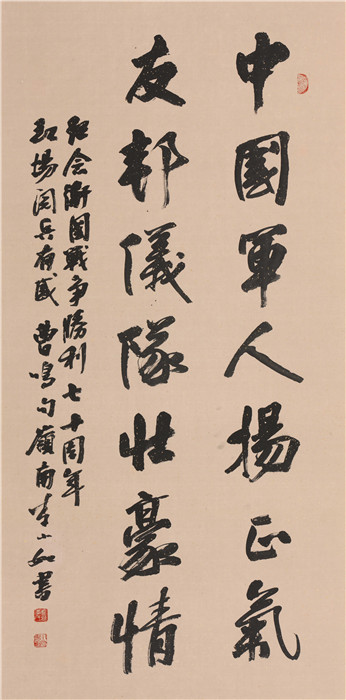 中國軍人揚正氣
友邦儀隊壯豪情
紀念衛國戰爭勝利七十周年
紅場閱兵有感 曹鳴句嶺南李小如書